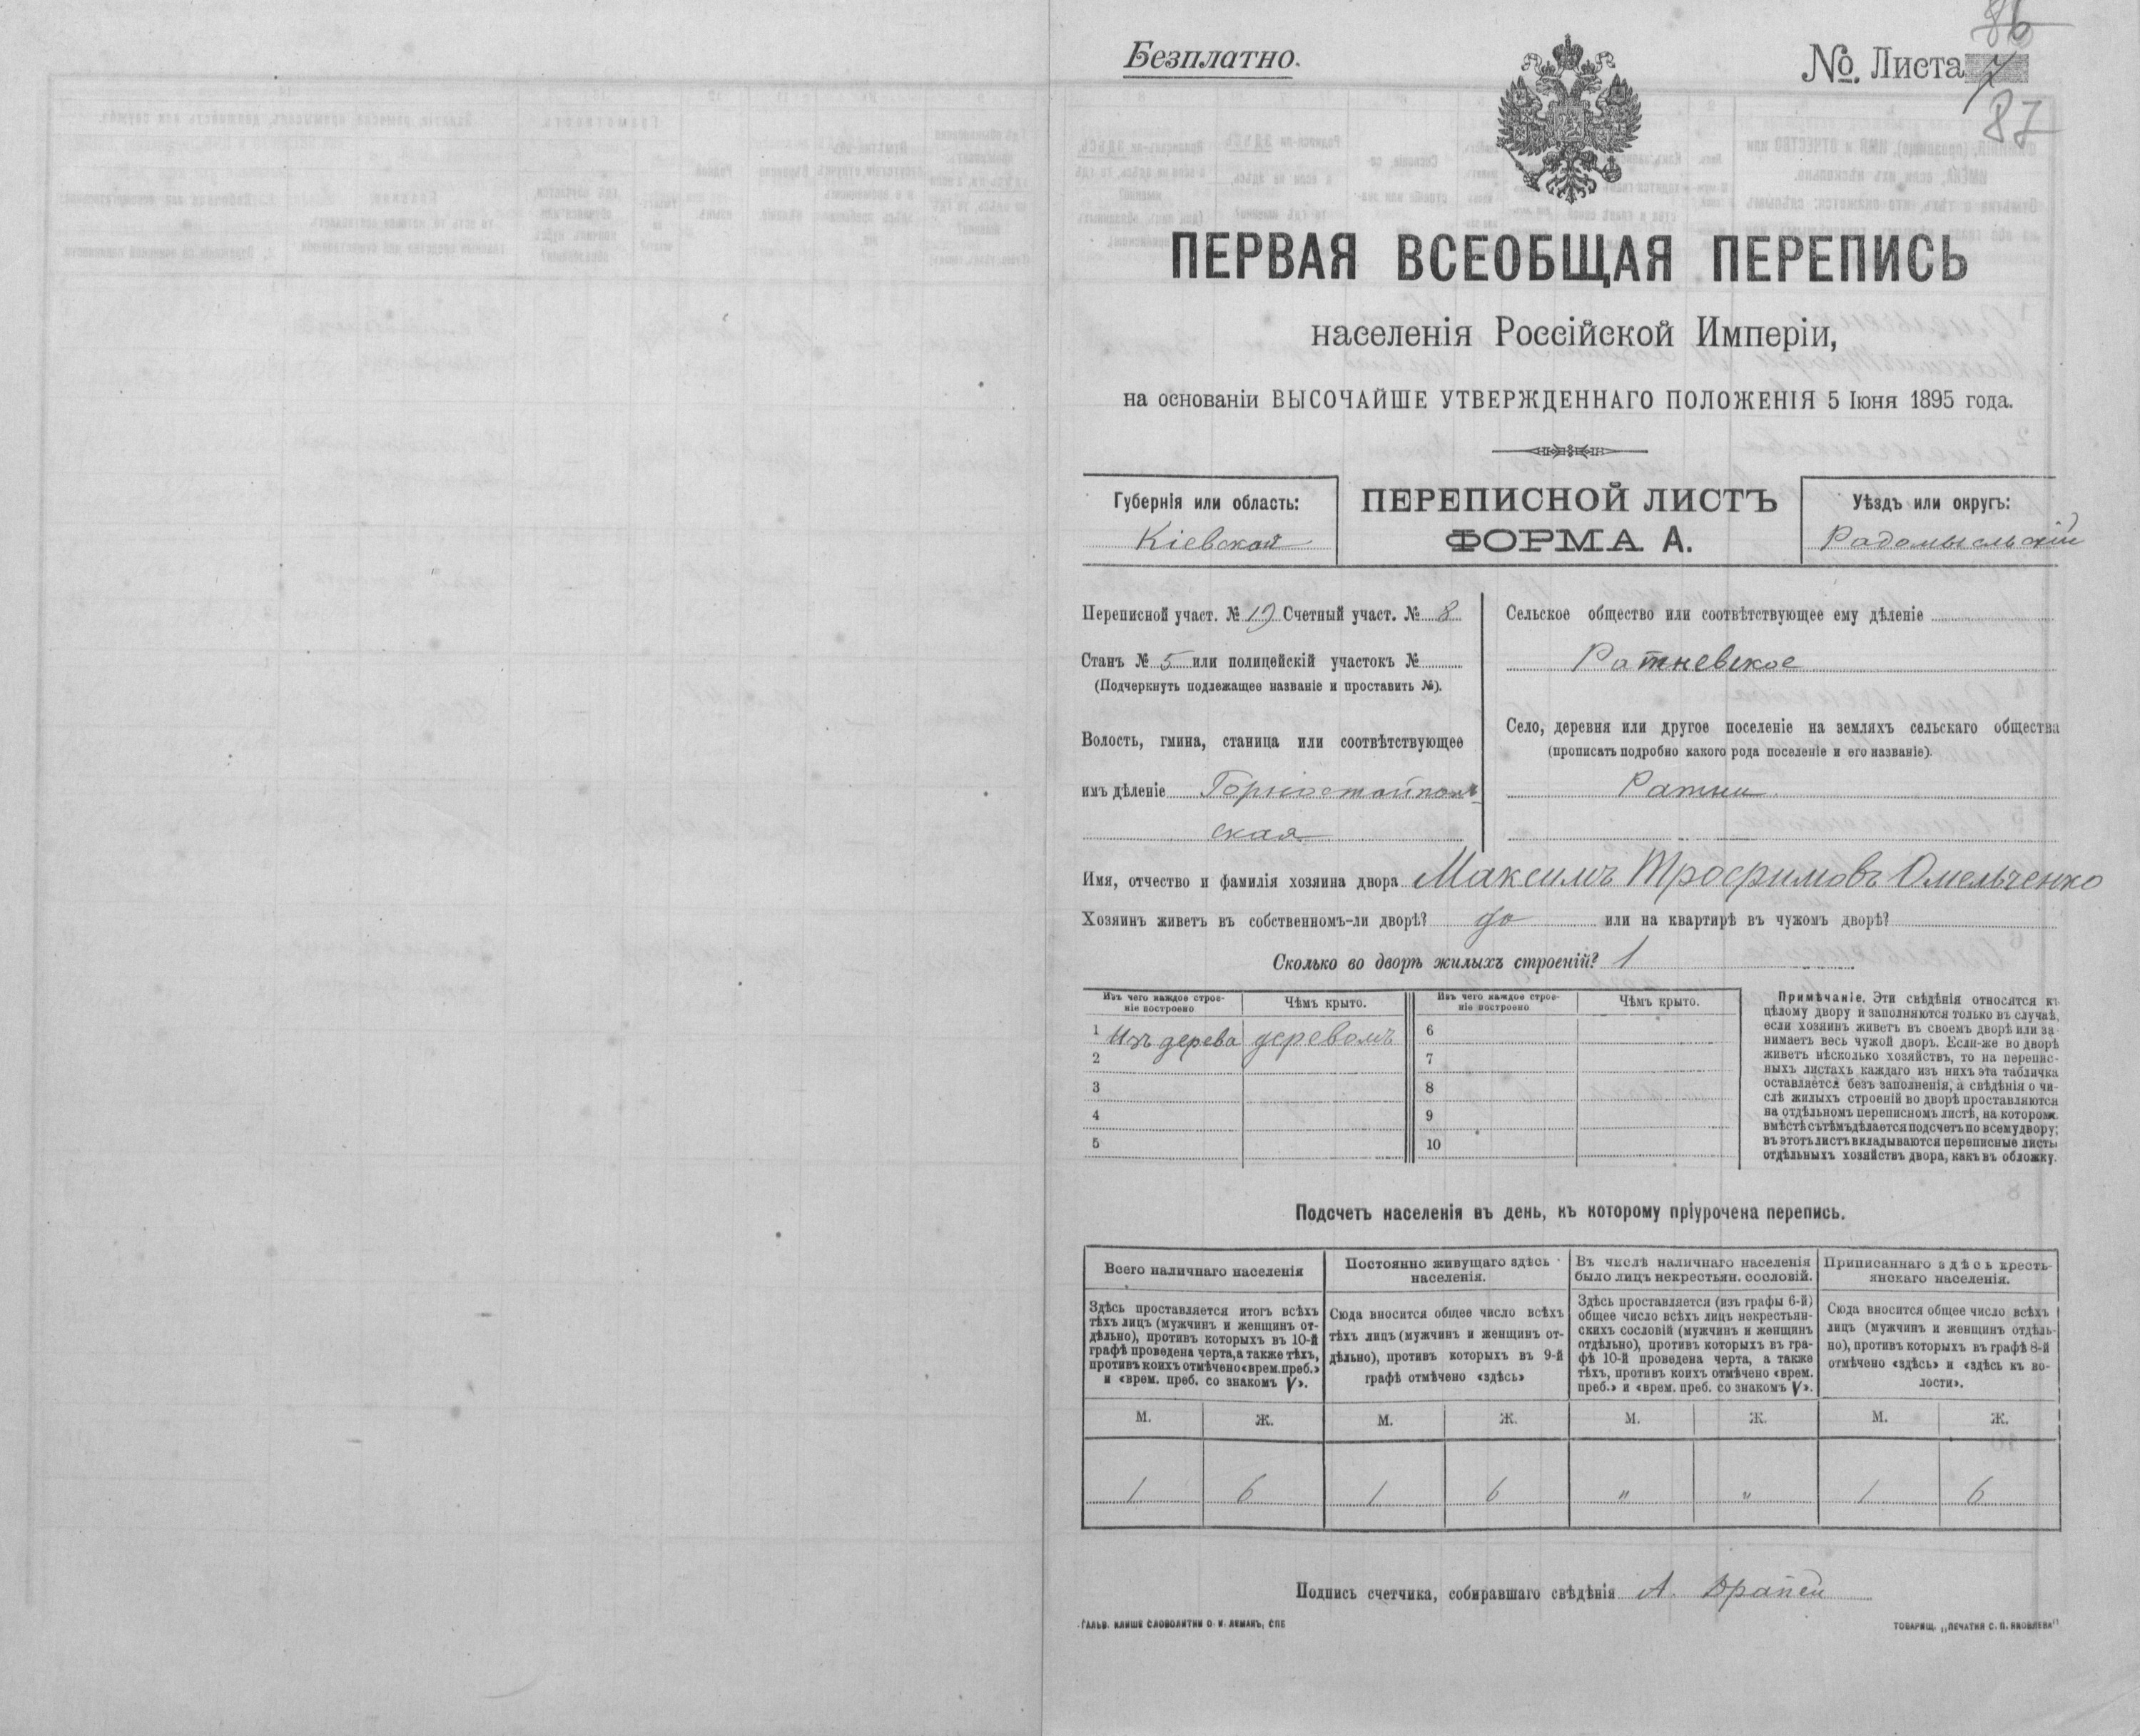 Безплатно.
№ Листа 7
86
87
ПЕРВАЯ ВСЕОБЩАЯ ПЕРЕПИСЬ
населенія Россійской Имперіи,
на основаніи ВЫСОЧАЙШЕ УТВЕРЖДЕННАГО ПОЛОЖЕНІЯ 5 Іюня 1895 года.
Губернія или область:
Кіевская
ПЕРЕПИСНОЙ ЛИСТЪ
ФОРМА А.
Уѣздъ или округъ:
Радомысльскій
Переписной участ. № 19 Счетный участ. № 8
Станъ № 5 или полицейскій участокъ №
(Подчеркнуть подлежащее названіе и проставить №).
Волость, гмина, станица или соотвѣтствующее
имъ дѣленіе Горностайполь
ская
Сельское общество или соотвѣтствующее ему дѣленіе
Ратневское
Село, деревня или другое поселеніе на земляхъ сельскаго общества
(прописать подробно какого рода поселеніе и его названіе).
Ратни
Имя, отчество и фамилія хозяина двора Максимъ Трофимовъ Омельченко
Хозяинъ живетъ въ собственномъ-ли дворѣ? да или на квартирѣ въ чужомъ дворѣ?
Сколько во дворѣ жилыхъ строеній? 1
Изъ чего каждое строе-
ніе построено
Чѣмъ крыто.
Изъ чего каждое строе-
ніе построено
Чѣмъ крыто.
1 Изъ дерева деревомъ
2
3
4
5
6
7
8
9
10
Примѣчаніе. Эти свѣдѣнія относятся къ
цѣлому двору и заполняются только въ случаѣ,
если хозяинъ живетъ въ своемъ дворѣ или за-
нимаетъ весь чужой дворъ. Если-же во дворѣ
живетъ нѣсколько хозяйствъ, то на перепис-
ныхъ листахъ каждаго изъ нихъ эта табличка
оставляется безъ заполненія, а свѣдѣнія о чи-
слѣ жилыхъ строеній во дворѣ проставляются
на отдѣльномъ переписномъ листѣ, на которомъ
вмѣстѣ съ тѣмъ дѣлается подсчетъ по всему двору;
въ этотъ листъ вкладываются переписные листы
отдѣльныхъ хозяйствъ двора, какъ въ обложку.
Подсчетъ населенія въ день, къ которому пріурочена перепись.
Всего наличнаго населенія
Здѣсь проставляется итогъ всѣхъ
тѣхъ лицъ (мужчинъ и женщинъ от-
дѣльно), противъ которыхъ въ 10-й
графѣ проведена черта, а также тѣхъ,
противъ коихъ отмѣчено «врем. преб.»
и «врем. преб. со знакомъ V».
Постоянно живущаго здѣсь
населенія.
Сюда вносится общее число всѣхъ
тѣхъ лицъ (мужчинъ и женщинъ от-
дѣльно), противъ которыхъ въ 9-й
графѣ отмѣчено «здѣсь»
Въ числѣ наличнаго населенія
было лицъ некрестьян. сословій.
Здѣсь проставляется (изъ графы 6-й)
общее число всѣхъ лицъ некрестьян-
скихъ сословій (мужчинъ и женщинъ
отдѣльно), противъ которыхъ въ гра-
фѣ 10-й проведена черта, а также
тѣхъ, противъ коихъ отмѣчено «врем.
преб.» и «врем. преб. со знакомъ V».
Приписаннаго здѣсь кресть-
янскаго населенія.
Сюда вносится общее число всѣхъ
лицъ (мужчинъ и женщинъ отдѣль-
но), противъ которыхъ въ графѣ 8-й
отмѣчено «здѣсь» и «здѣсь къ во-
лости».
М. Ж. М. Ж. М. Ж. М. Ж.
1 6 1 6 " " 1 6
Подпись счетчика, собиравшаго свѣдѣнія А.
ГАЛЬВ. КЛИШЕ СЛОВОЛИТНИ О. И. ЛЕМАНЪ, СПБ
ТОВАРИЩ. „ПЕЧАТНЯ С. П. ЯКОВЛЕВА"